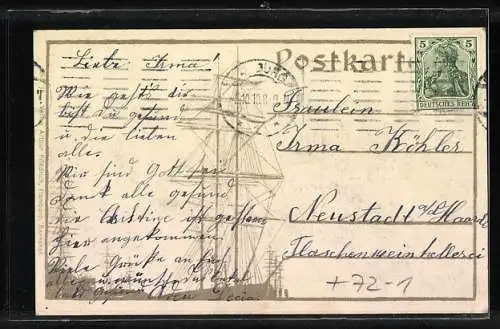 Postkarte
5 5
DEUTSCHES REICH
Liebe Irma!
Wie geht's dir
bist du gesund
u die lieben
alle.
Wir sind Gott sei
Dank alle gesund
die ist gestern
hier angekommen.
Viele Grüße an
alle u
Fräulein
Irma Köhler
Neustadt a/d Haardt
Flaschenweinkellerei
+72-1